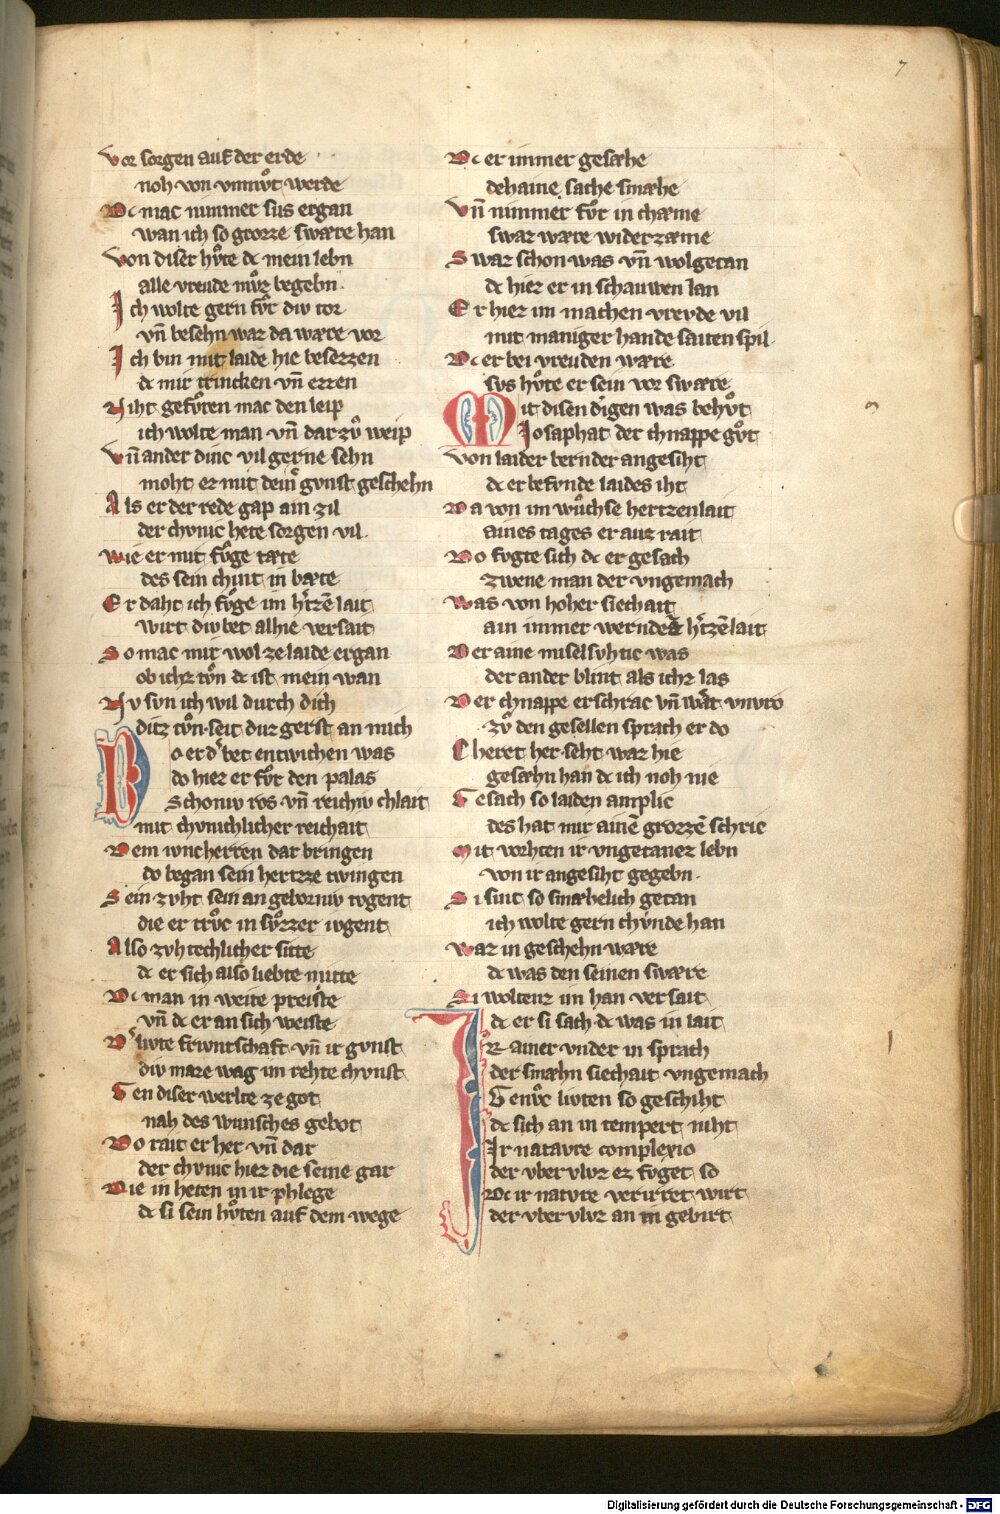 7
Vor sorgen auf der erde
noh von vnmvͦt werde
Dc mac nimmer sus ergan
wan ich so grozze swære han
Von diser hvͦte dc mein lebn
alle vreude mvͦz begebn
Ich wolte gern fvͤr div tor
vn̄ besehn waz da wære vor
Ich bin mit laide hie besezzen
dc mir trincken vn̄ ezzen
Niht gefvͦren mac den leip
ich wolte man vn̄ dar zvͦ weip
Vn̄ ander dinc vil gerne sehn
moht ez mit deinˀ gvnst geschehn
Als er der rede gap ain zil
der chvnic hete sorgen vil
Wie er mit fvͦge tæte
des sein chint in bæte
Er daht ich fvͤge im hˀtzē lait
wirt div bet alhie versait
So mac mir wol ze laide ergan
ob ichz tvͦn dc ist mein wan
Nv svn ich wil durch dich
ditz tvͦn seit dur gerst an mich
Do er dˀ bet entwichen was
do hiez er fvͤr den palas
Schoniv ros vn̄ reichiv chlait
mit chvnichlicher reichait
Dem ivncherren dar bringen
do began sein hertzze twingen
Sein zvht sein an geborniv tvgent
die er trvͦc in svͤzzer ivgent
Also zvhtechlicher sitte
dc er sich also liebte mitte
Dc man in weite preiste
vn̄ dc er an sich weiste
Dˀ livte frivntschaft vn̄ ir gvnst
div mare wag im rehte chvnst
Gen diser werlte ze got
nah des wunsches gebot
Do rait er her vn̄ dar
der chvnic hiez die seine gar
Die in heten in ir phlege
dc si sein hvͦten auf dem wege
Dc er immer gesæhe
dehaine sache smæhe
Vn̄ nimmer fvͤr in chæme
swaz wære widerzæme
Swaz schon was vn̄ wolgetan
dc hiez er in schauwen lan
Er hiez im machen vrevde vil
mit maniger hande saiten spil
Dc er bei vreuden wære
svs hvͦte er sein vor swære
Mit disen dīgen was behvͦt
Josaphat der chnappe gvͦt
Von laider bernder angesiht
dc er befvnde laides iht
Da von im wvͦchse hertzen lait
aines tages er auz rait
Do fvgte sich dc er gesach
zwene man der vngemach
Was von hoher siechait
ain immer werndez hˀtzē lait
Der aine miselsvhtic was
der ander blint als ichz las
Der chnappe erschrac vn̄ wart vnvro
zvͦ den gesellen sprach er do
Cheret her seht waz hie
gesæhn han dc ich noh nie
Gesach so laiden anplic
des hat mir ainē grozzē schric
Mit vorhten ir vngetanez lebn
von ir angesiht gegebn
Si sint so smæhelich getan
ich wolte gern chvnde han
Waz in geschehn wære
dc was den seinen swære
Si woltenz im han versait
dc er si sach dc was in lait
Ir ainer vnder in sprach
der smæhn siechait vngemach
Genvͦc livten so geschiht
dc sich an in tempert niht
Ir natavre complexio
der vber vlvz ez fvget so
Dc ir natvre verirret wirt
der vber vlvz an in gebirt
Digitalisierung gefördert durch die Deutsche Forschungsgemeinschaft - DFG